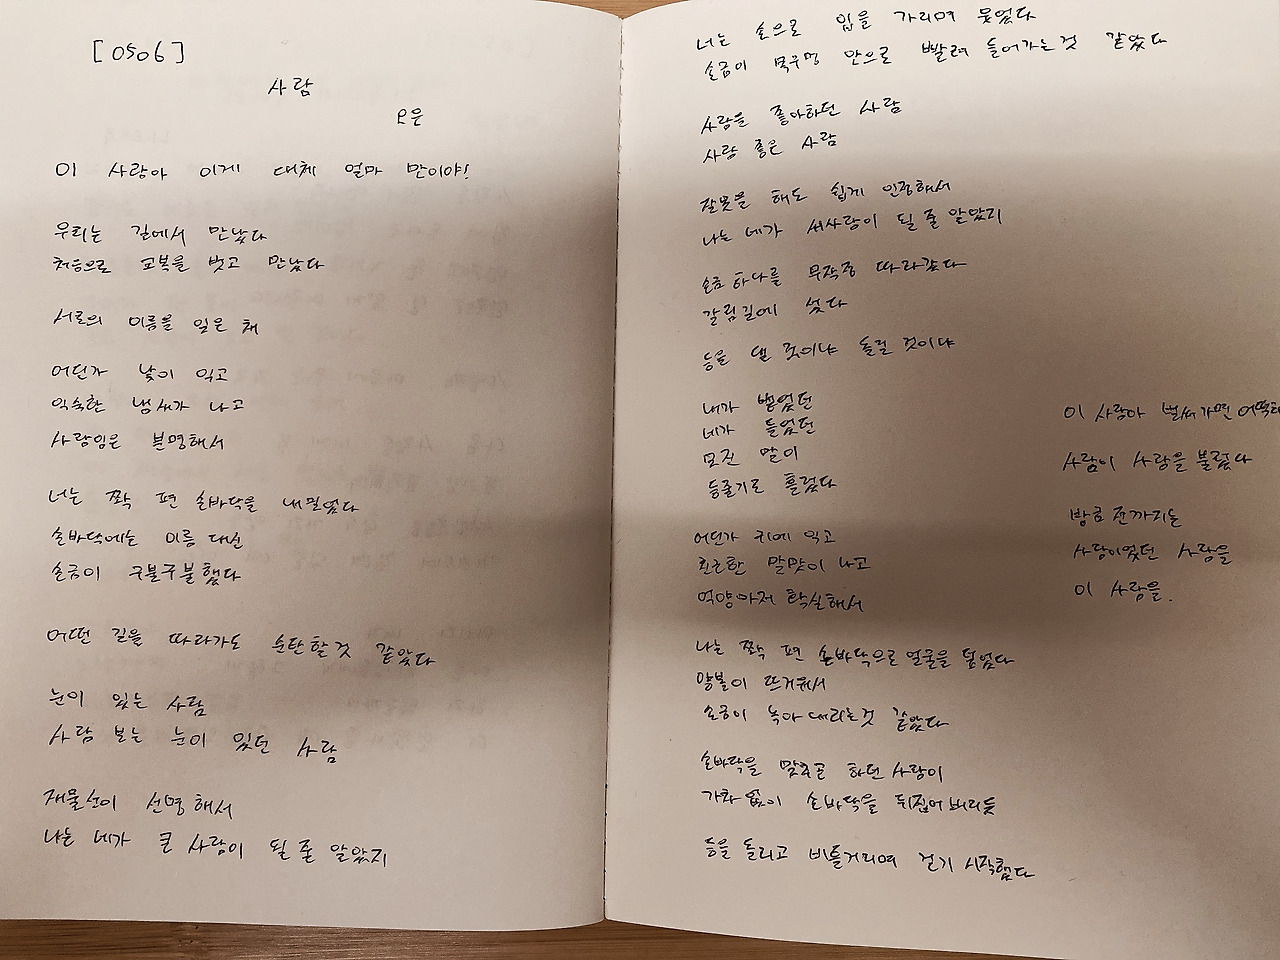 [0506]
사람
오은
이 사람아 이게 대체 얼마 만이야!
우리는 길에서 만났다
처음으로 교복을 벗고 만났다
서로의 이름을 잊은 채
어딘가 낯이 익고
익숙한 냄새가 나고
사람임은 분명해서
너는 쫙 편 손바닥을 내밀었다
손바닥에는 이름 대신
손금이 구불구불했다
어떤 길을 따라가도 순탄할것 같았다
눈이 있는 사람
사람 보는 눈이 있던 사람
재물선이 선명해서
나는 네가 큰 사람이 될 줄 알았지
너는 손으로 입을 가리며 웃었다
손금이 목구멍 안으로 빨려 들어가는것 같았다
사람을 좋아하던 사람
사람 좋은 사람
잘못을 해도 쉽게 인정해서
나는 네가 싸사람이 될 줄 알았지
손금 하나를 무작정 따라갔다
갈림길에 섰다
등을 댈 것이냐 돌릴 것이냐
내가 뱉었던
네가 들었던
모진 말이
등줄기로 흘렀다
어딘가 귀에 익고
친근한 말맛이 나고
억양마저 확실해서
나는 쫙 편 손바닥으로 얼굴을 덮었다
양볼이 뜨거워서
손금이 녹아 내리는것 같았다
손바닥을 맞추곤 하던 사람이
가차 없이 손바닥을 뒤집어버리듯
등을 돌리고 비틀거리며 걷기 시작했다
이 사람아 벌써가면 어떡해
사람이 사람을 불렀다
방금 전까지는
사람이었던 사람을
이 사람을.